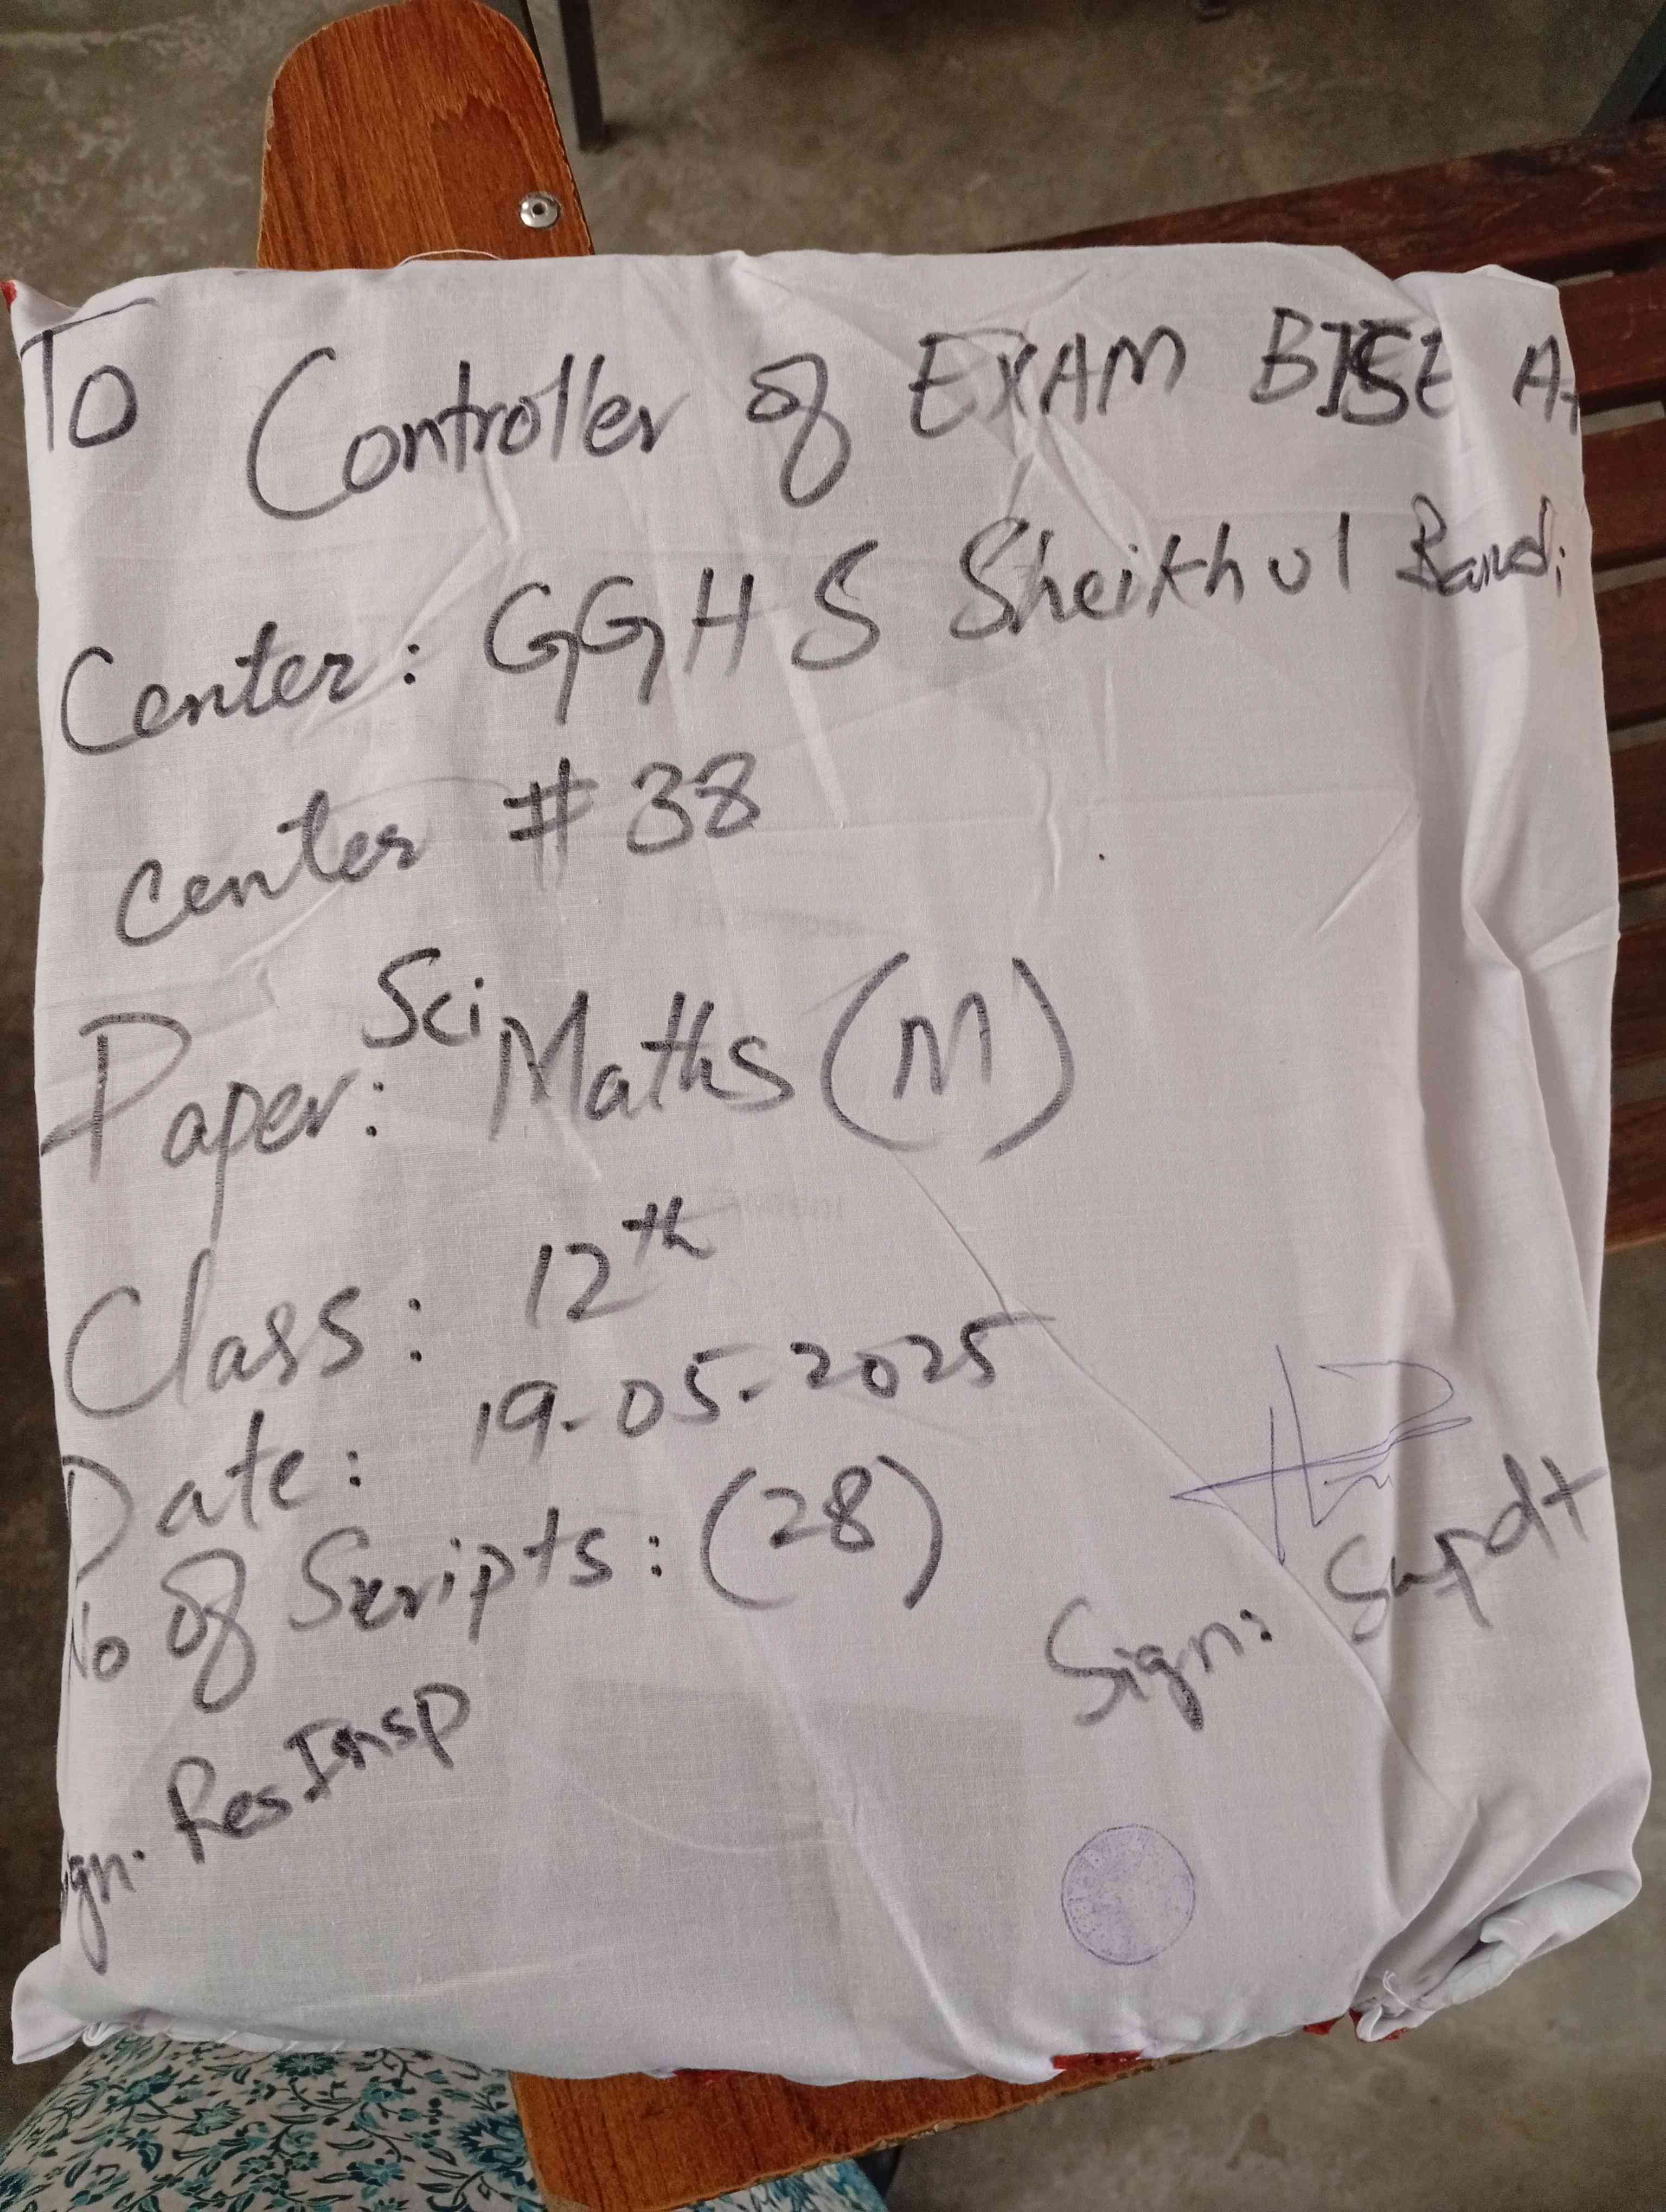 To Controller of EXAM BISE A
Center: GGHS Sheikhul Bandi
Center # 38
Paper: Sci Maths (M)
Class: 12th
Date: 19-05-2025
No of Scripts: (28)
Sign: Supdt
ign. Res Insp